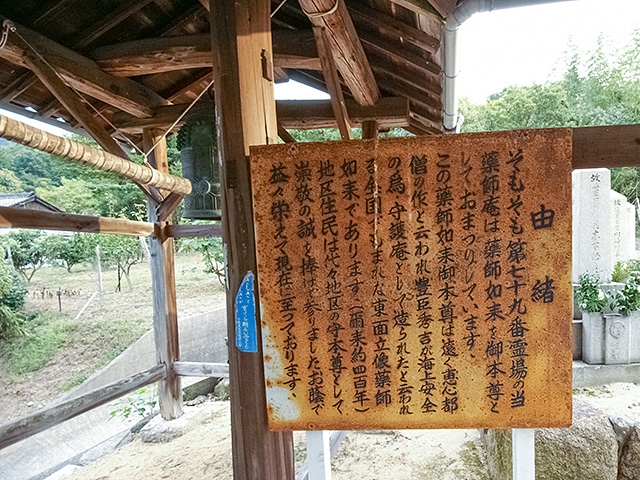 由緒
そもそも第七十九番霊場の当
薬師庵は薬師如来を御本尊と
しておまつりしています。
この薬師如来御本尊は遠く恵心都
僧の作と云われ豊臣秀吉が海上安全
の為、守護庵として造られたと云われ
る全国にもまれな東面立像薬師
如来であります（爾来約四百年）
地区住民は代々地区守本尊として
崇敬の誠を捧げて参りましたお蔭で
益々栄えて現在に至っております。